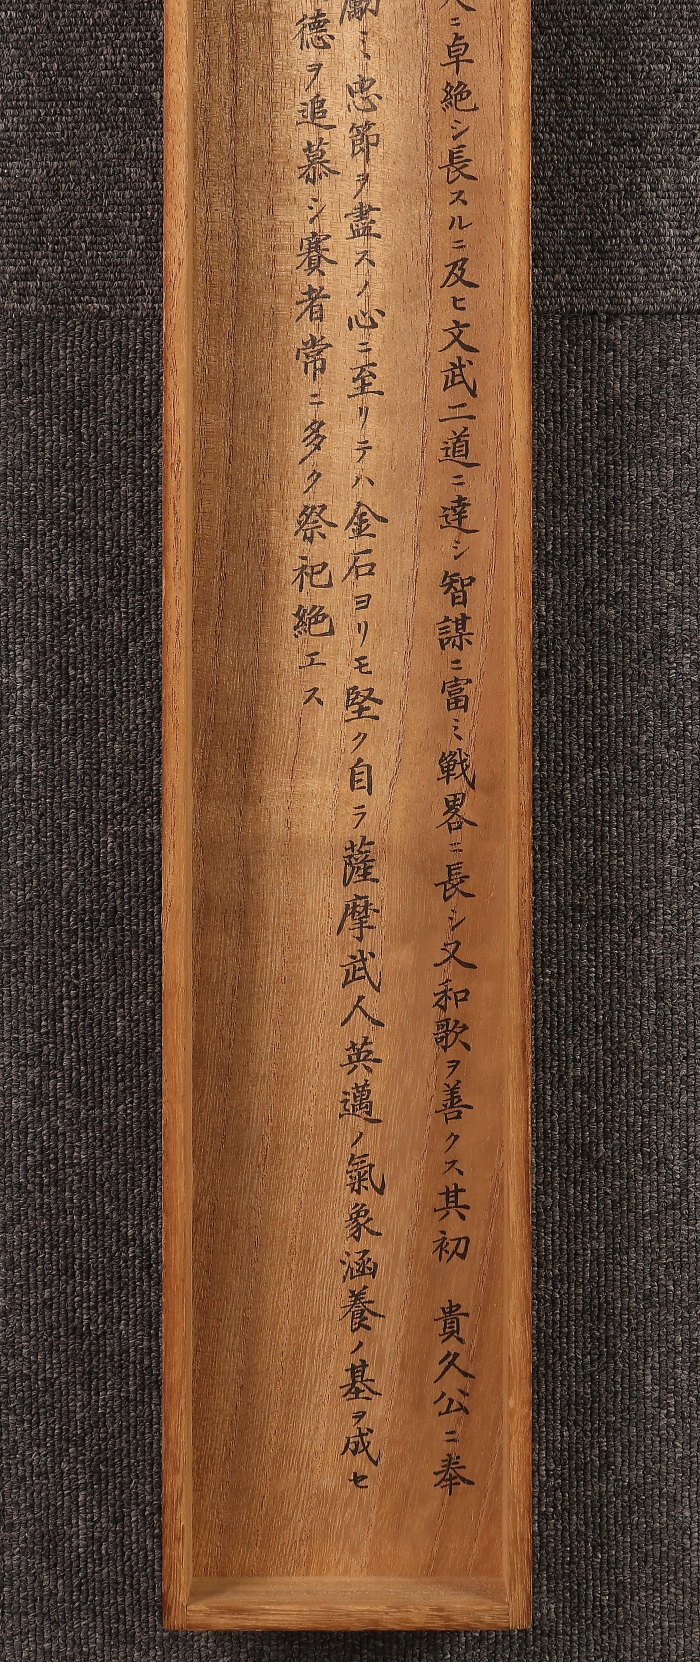 ニ卓絶シ長スルニ及ヒ文武二道ニ達シ智謀ニ富ミ戦畧ニ長シ又和歌ヲ善クス其初　貴久公ニ奉
勵ミ忠節ヲ盡スノ心ニ至リテハ金石ヨリモ堅ク自ラ薩摩武人英邁ノ氣象涵養ノ基ヲ成セ
德ヲ追慕シ賽者常ニ多ク祭祀絶エス